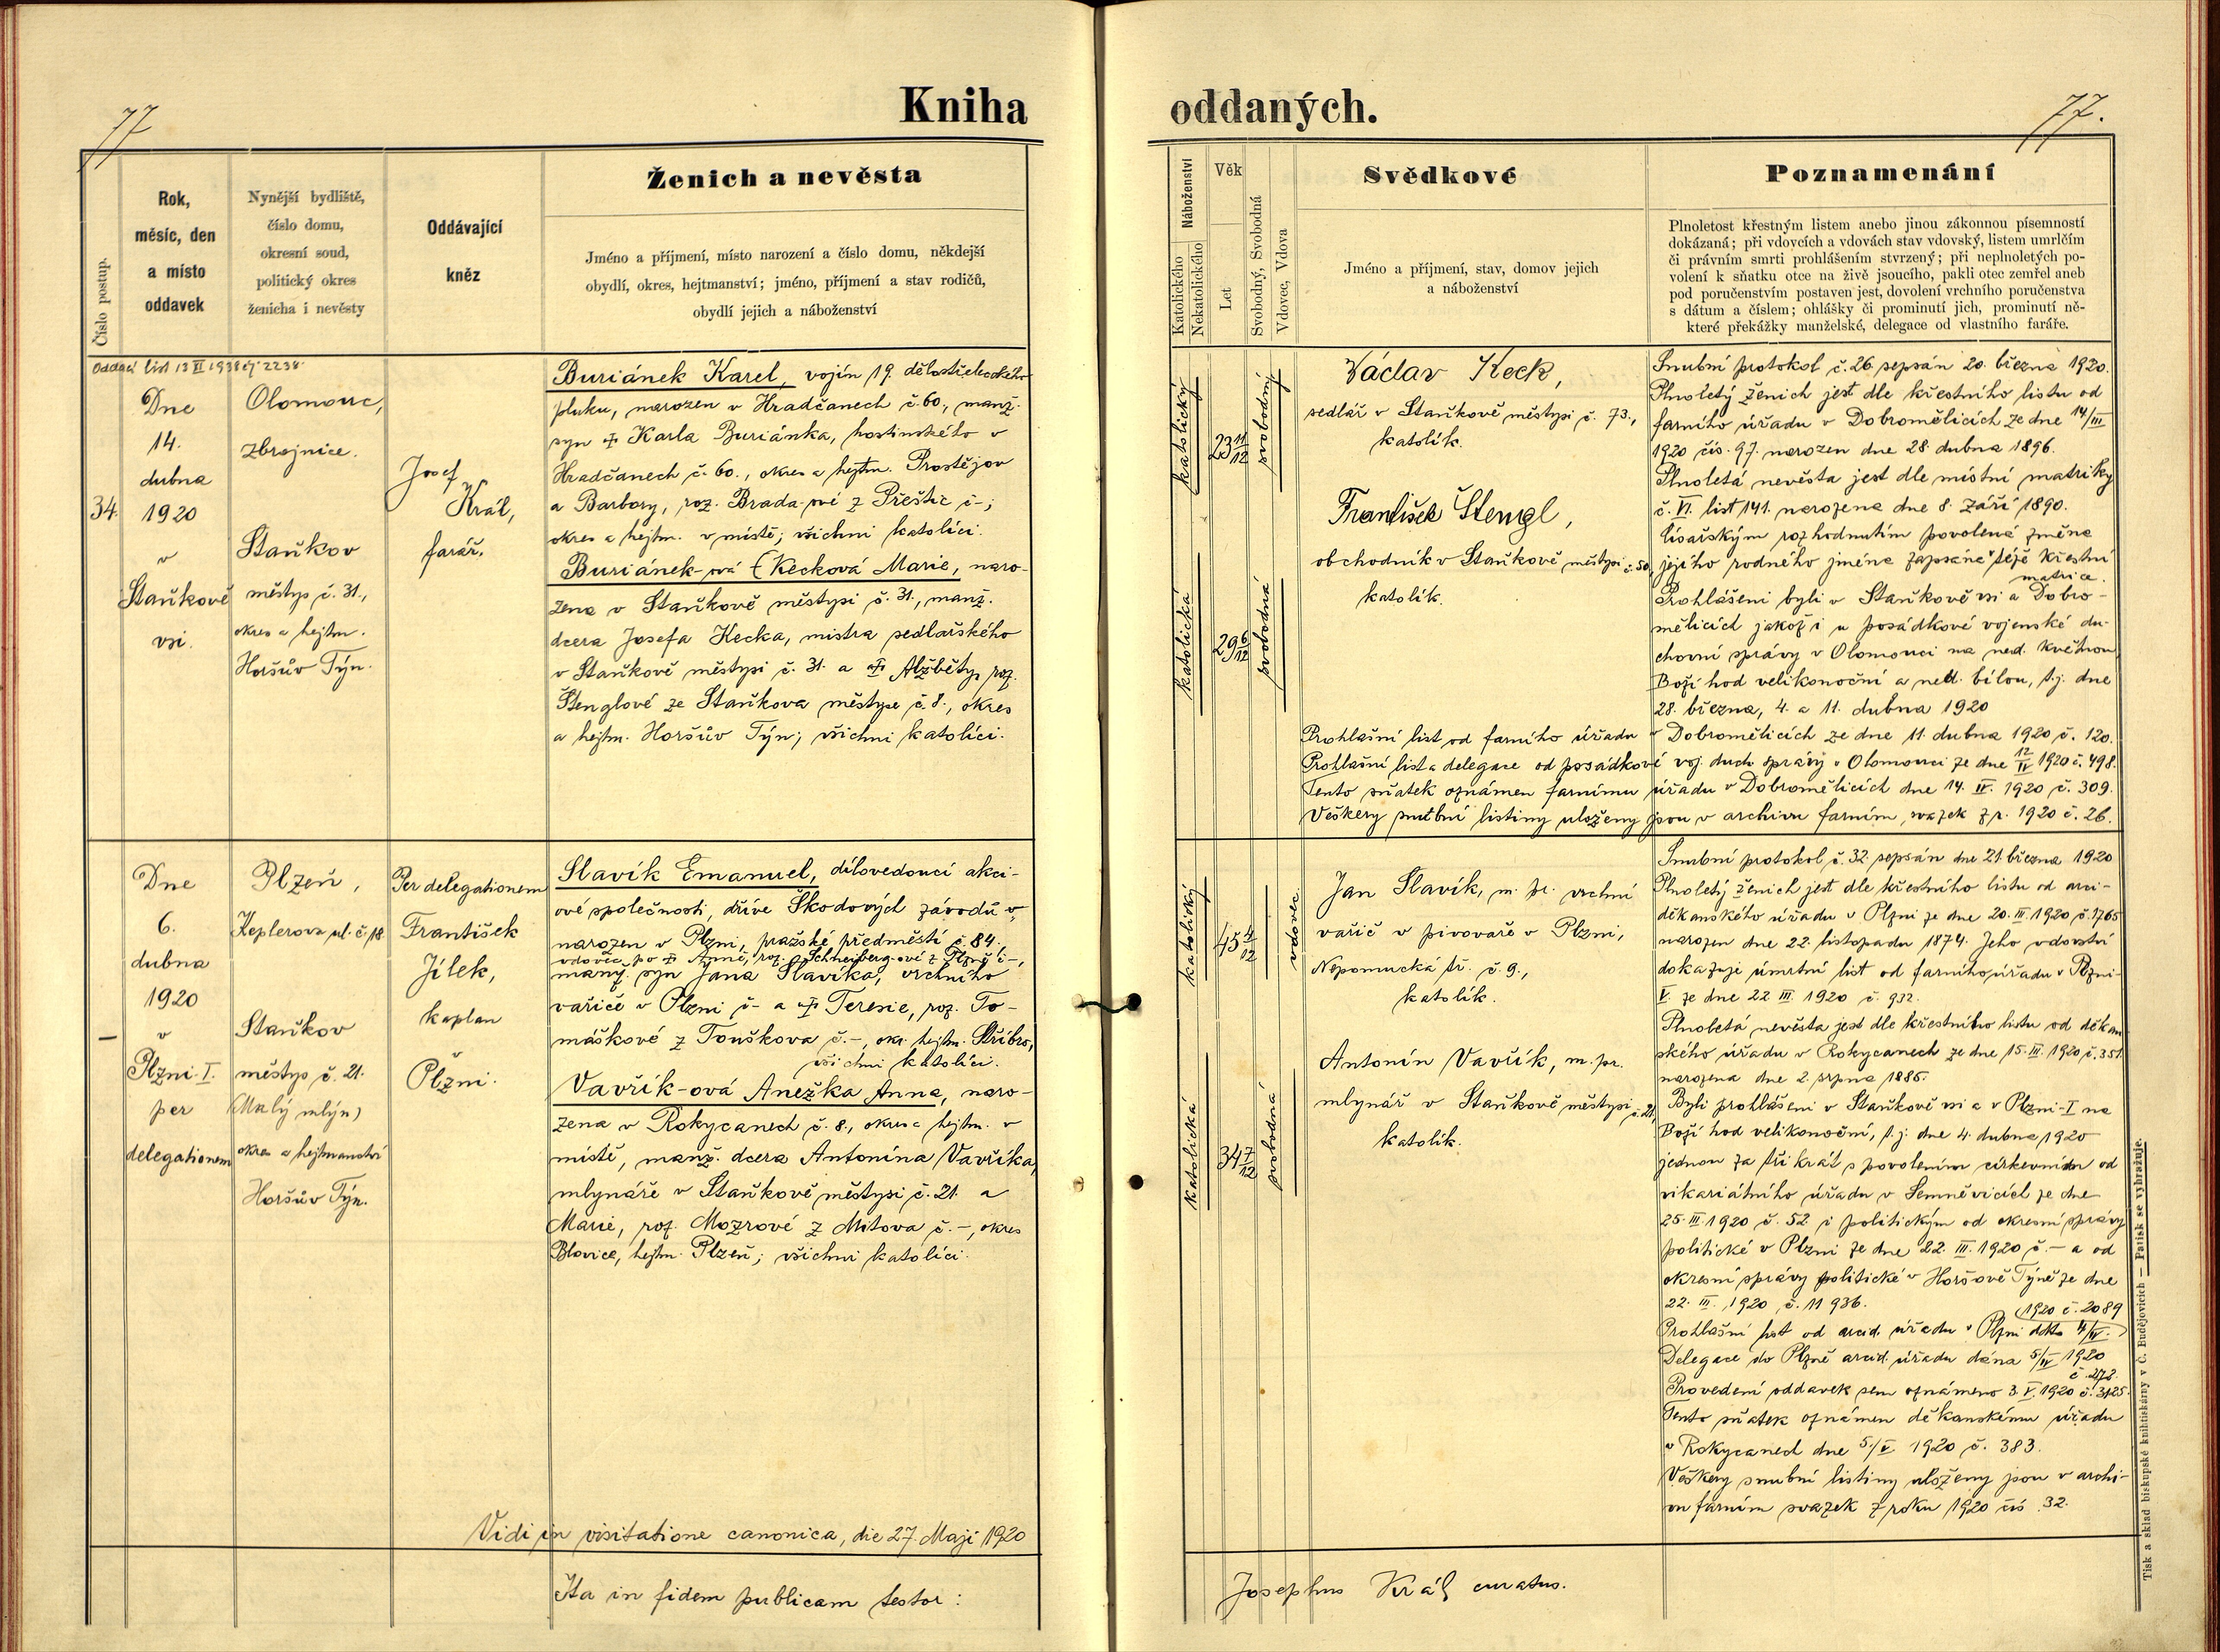 77
Kniha
oddaných.
77.
Číslo postup.
Rok,
měsíc, den
a místo
oddavek
Nynější bydliště,
číslo domu,
okresní soud,
politický okres
ženicha i nevěsty
Oddávající
kněz
Ženich a nevěsta
Jméno a příjmení, místo narození a číslo domu, někdejší
obydlí, okres, hejtmanství; jméno, příjmení a stav rodičů,
obydlí jejich a náboženství
Náboženství
Katolického
Nekatolického
Věk
Let
Svobodný, Svobodná
Vdovec, Vdova
Svědkové
Jméno a příjmení, stav, domov jejich
a náboženství
Poznamenání
Plnoletost křestným listem anebo jinou zákonnou písemností
dokázaná; při vdovcích a vdovách stav vdovský, listem umrlčím
či právním smrti prohlášením stvrzený; při neplnoletých po-
volení k sňatku otce na živě jsoucího, pakli otec zemřel aneb
pod poručenstvím postaven jest, dovolení vrchního poručenstva
s dátum a číslem; ohlášky či prominutí jich, prominutí ně-
které překážky manželské, delegace od vlastního faráře.
Oddací list 13 VI 1938 čj. 2238
34.
Dne
14.
dubna
1920
v
Staňkově
vsi.
Olomouc,
zbrojnice.
Staňkov
městys č. 31.,
okres a hejtm.
Horšův Týn.
Josef
Král,
farář.
Buriánek Karel, vojín 19. dělostřeleckého
pluku, narozen v Hradčanech č. 60., manž.
syn † Karla Buriánka, hostinského v
Hradčanech č. 60., okres a hejtm. Prostějov
a Barbory, roz. Brada-ové z Přeštic č-;
okres a hejtm. v místě; všichni katolíci.
Buriánek-ová (Kecková Marie, naro-
zena v Staňkově městysi č. 31., manž.
dcera Josefa Kecka, mistra sedlařského
v Staňkově městysi č. 31. a † Alžběty, roz.
Štenglové ze Staňkova městyse č. 8., okres
a hejtm. Horšův Týn; všichni katolíci.
katolický
23 11/12
svobodný
katolická
29 6/12
svobodná
Václav Keck,
sedlář v Staňkově městysi č. 73.,
katolík.
František Štengl,
obchodník v Staňkově městysi č. 50,
katolík.
Snubní protokol č. 26 sepsán 20. března 1920.
Plnoletý ženich jest dle křestního listu od
farního úřadu v Dobromělicích ze dne 14/III
1920 čís. 97. narozen dne 28. dubna 1896.
Plnoletá nevěsta jest dle místní matriky
č. VI. list 141. narozena dne 8. září 1890.
Císařským rozhodnutím povolená změna
jejího rodného jména zapsána v téže křestní
matrice.
Prohlášeni byli v Staňkově vsi a Dobro-
mělicích jakož i u posádkové vojenské du-
chovní správy v Olomouci na ned. květnou
Boží hod velikonoční a neděl. bílou, t.j. dne
28. března, 4. a 11. dubna 1920
Prohlašní list od farního úřadu v Dobromělicích ze dne 11. dubna 1920 č. 120.
Prohlašní list a delegace od posádkové voj. duch. správy v Olomouci ze dne 12/IV 1920 č. 498.
Tento sňatek oznámen farnímu úřadu v Dobromělicích dne 14. IV. 1920 č. 309.
Veškery snubní listiny uloženy jsou v archivu farním, svazek z r. 1920 č. 26.
–
Dne
6.
dubna
1920
v
Plzni-I.
per
delegationem
Plzeň,
Keplerova ul. č. 18
Staňkov
městys č. 21.
(Malý mlýn)
okres a hejtmanství
Horšův Týn.
Per delegationem
František
Jílek,
kaplan
v
Plzni.
Slavík Emanuel, dílovedoucí akci-
ové společnosti, dříve Škodových závodů v,
narozen v Plzni, pražské předměstí č. 84.,
vdovec po † Anně, roz. Schneiberg-ové z Plzně č-,
manž. syn Jana Slavíka, vrchního
vařiče v Plzni č- a † Teresie, roz. To-
máškové z Touškova č.-, okr. hejtm. Stříbro,
všichni katolíci.
Vavřík-ová Anežka Anna, naro-
zena v Rokycanech č. 8., okres a hejtm. v
místě, manž. dcera Antonína Vavříka,
mlynáře v Staňkově městysi č. 21. a
Marie, roz. Mozrové z Mitova č. -, okres
Blovice, hejtm. Plzeň; všichni katolíci.
katolický
45 4/12
vdovec
katolická
34 7/12
svobodná
Jan Slavík, m. pr. vrchní
vařič v pivovaře v Plzni,
Nepomucká tř. č. 9.,
katolík.
Antonín Vavřík, m. pr.
mlynář v Staňkově městysi č. 21,
katolík.
Snubní protokol č. 32. sepsán dne 21. března 1920
Plnoletý ženich jest dle křestního listu od arci-
děkanského úřadu v Plzni ze dne 20. III. 1920 č. 1765
narozen dne 22. listopadu 1874. Jeho vdovství
dokazuje úmrtní list od farního úřadu v Plzni-
V. ze dne 22 III. 1920 č. 932.
Plnoletá nevěsta jest dle křestního listu od děkan-
ského úřadu v Rokycanech ze dne 15. III. 1920 č. 351
narozena dne 2. srpna 1885.
Byli prohlášeni v Staňkově vsi a v Plzni-I na
Boží hod velikonoční, t.j. dne 4. dubna 1920
jednou za třikrát s povolením církevním od
vikariátního úřadu v Semněvicích ze dne
25. III. 1920 č. 52 i politickým od okresní správy
politické v Plzni ze dne 22. III. 1920 č. - a od
okresní správy politické v Horšově Týně ze dne
22. III. 1920 č. 11 936.
Prohlašní list od arcid. úřadu v Plzni ddto 4/IV. (1920 č. 2089
Delegace do Plzně arcid. úřadu dána 5/IV 1920
č. 272.
Provedení oddavek sem oznámeno 3. V. 1920 č. 3125.
Tento sňatek oznámen děkanskému úřadu
v Rokycanech dne 5./V 1920 č. 383.
Veškery snubní listiny uloženy jsou v archi-
vu farním svazek z roku 1920 čís. 32.
Vidi in visitatione canonica, die 27. Maji 1920
Ita in fidem publicam testor:
Josephus Král curatus.
Tisk a sklad biskupské knihtiskárny v Č. Budějovicích — Patisk se vyhražuje.